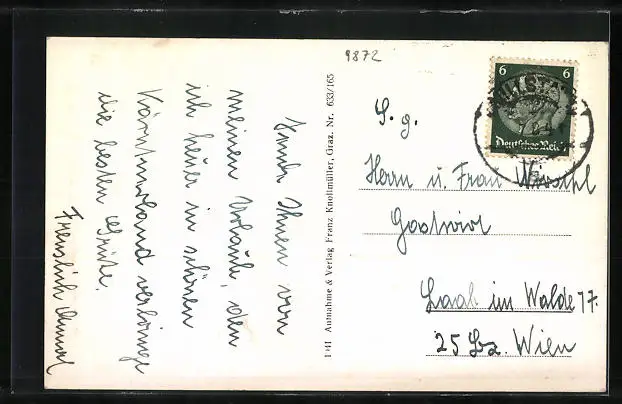 9872
6 6
Deutsches Reich
S. g.
Herrn u. Frau
Gastwirt
Laab im Walde 77.
25 Bz. Wien
1341 Aufnahme & Verlag Franz Knollmüller, Graz. Nr. 633/165
Sende Ihnen von
meinen Urlaub, den
ich heuer im schönen
Kärntnerland verbringe
die besten Grüße.